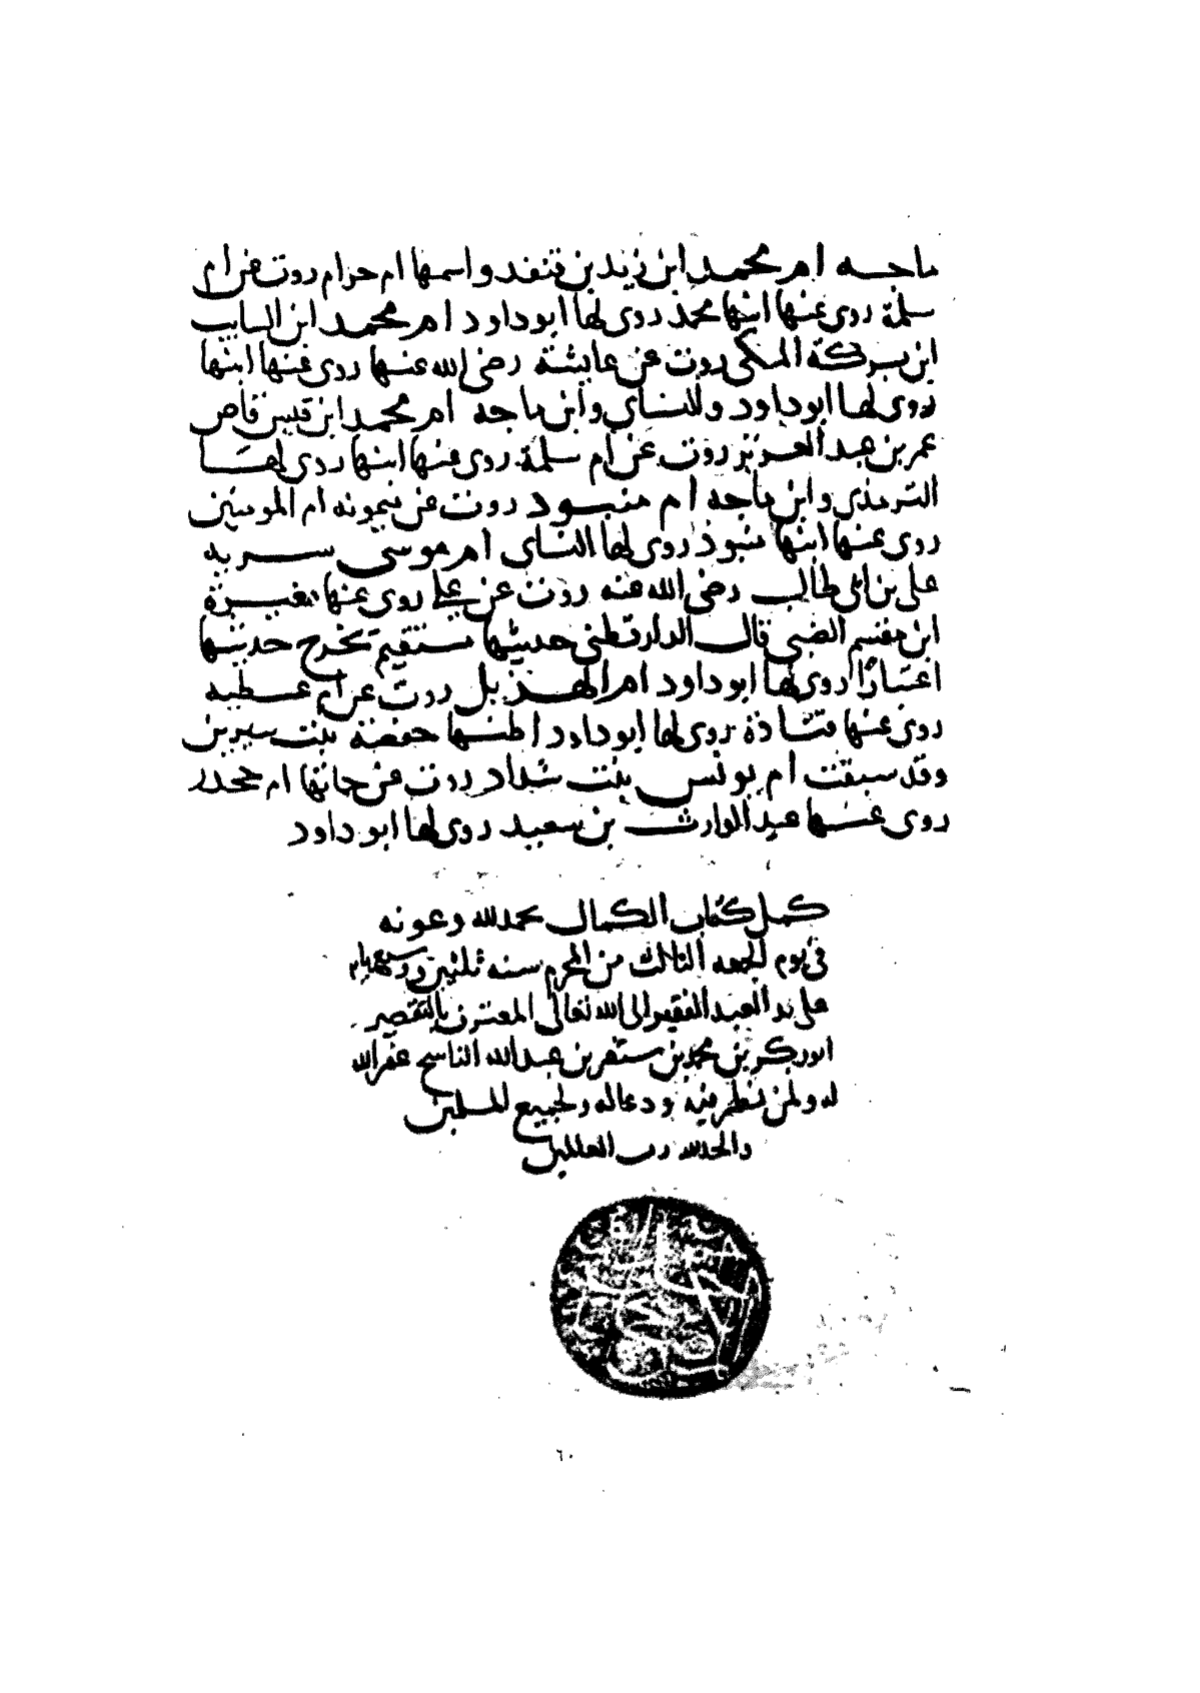 ماجه ام محمد ابن زيد بن قنفد واسمها ام حرام روت عن ام
سلمة روى عنها ابنها محمد روى لها ابو داود ام محمد ابن السايب
ابن بركة المكي روت عن عايشة رضى الله عنها روى عنها ابنها
روى لها ابو داود والنساى وابن ماجه ام محمد ابن قيس قاص
عمر بن عبد العزيز روت عن ام سلمة روى عنها ابنها روى لها
الترمذى وابن ماجه ام منبوذ روت عن ميمونه ام المومنين
روى عنها ابنها منبوذ روى لها النساى ام موسى سريه
على بن ابى طالب رضى الله عنه روت عن على روى عنها مغيرة
ابن مقسم الضبى قال الدارقطنى حديثها مستقيم يخرج حديثها
اعتبارًا روى لها ابو داود ام الهذيل روت عن ام عطيه
روى عنها قتادة روى لها ابو داود اظنها حفصة بنت سيرين
وقد سبقت ام يونس بنت شداد روت عن حماتها ام جحدر
روى عنها عبد الوارث بن سعيد روى لها ابو داود
كمل كتاب الكمال بحمد الله وعونه
فى يوم الجمعه الثالث من المحرم سنه ثلثين وسبعمايه
على يد العبد الفقير الى الله تعالى المعترف بالتقصير
ابو بكر بن محمد بن سنقر بن عبد الله الناسخ غفر الله
له ولمن نظر فيه ودعا له ولجميع المسلمين
والحمد لله رب العالمين
٦٠